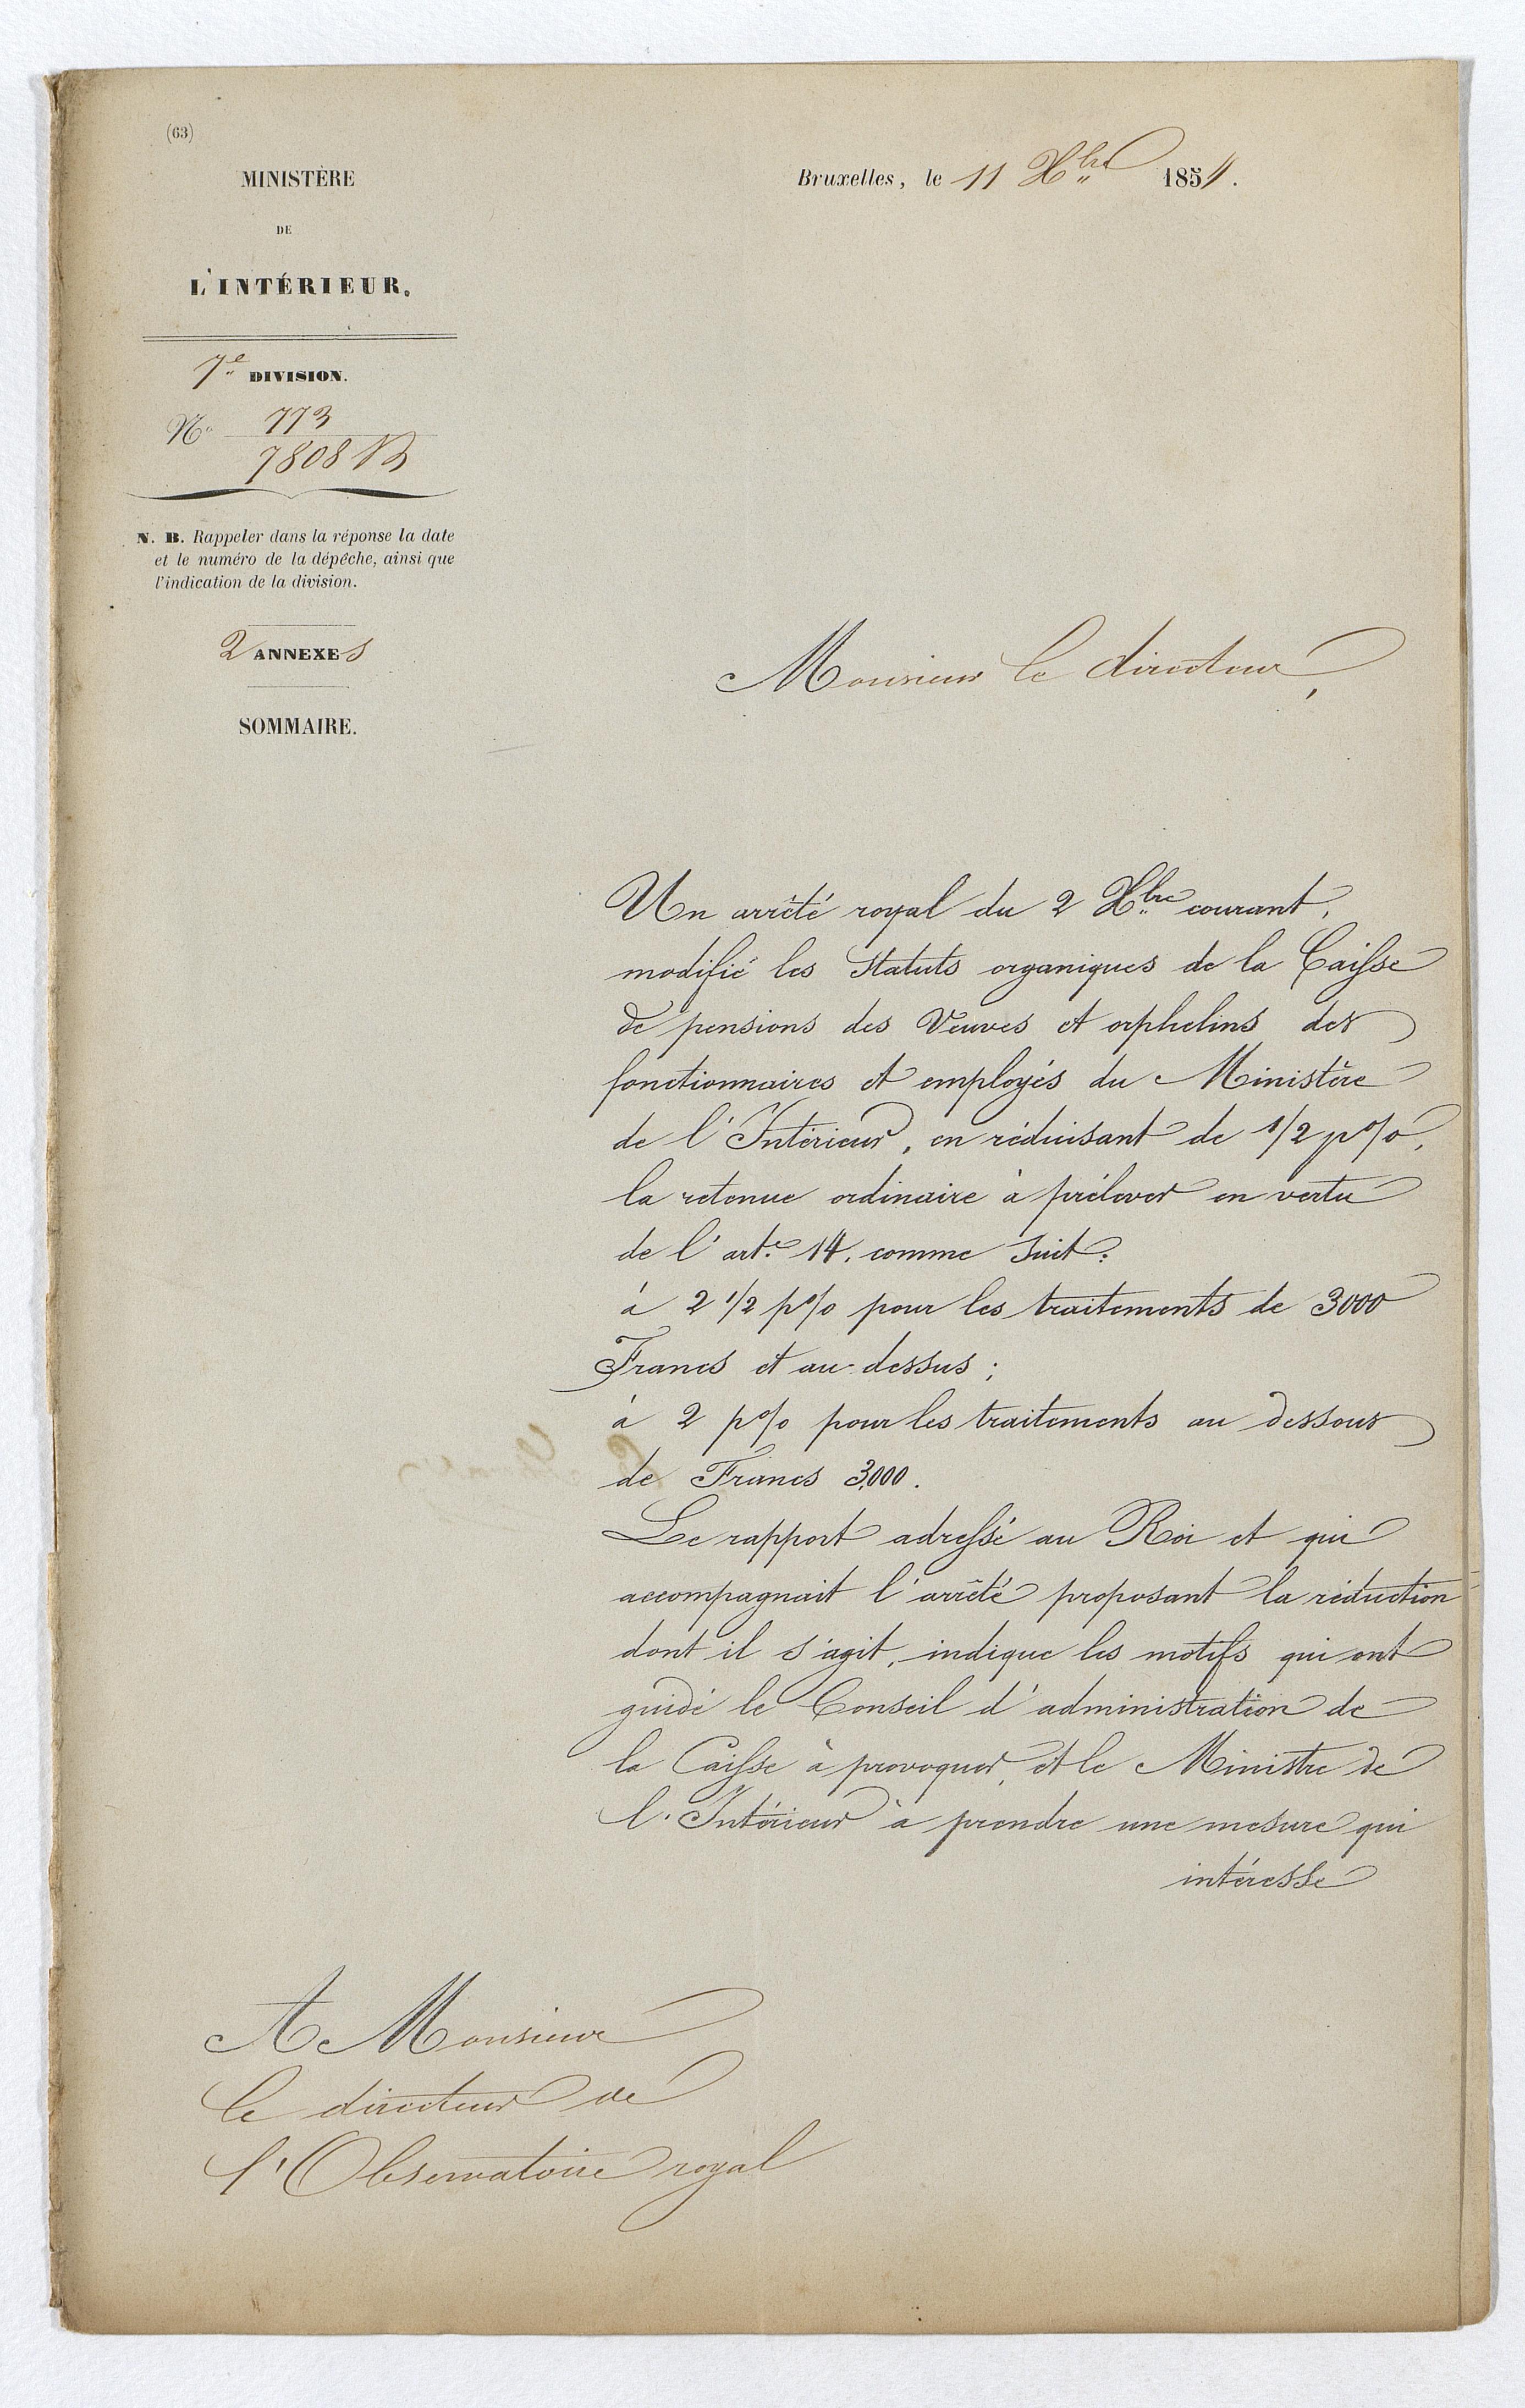 (63)
MINISTÈRE
DE
L'INTÉRIEUR.
7e DIVISION.
No 773
7808 B
N. B. Rappeler dans la réponse la date
et le numéro de la dépêche, ainsi que
l'indication de la division.
2 ANNEXES
SOMMAIRE.
Bruxelles, le 11 Xbre 1854.
Monsieur le directeur,
Un arrêté royal du 2 Xbre courant,
modifie les Statuts organiques de la Caisse
de pensions des Veuves et orphelins des
fonctionnaires et employés du Ministère
de l'Intérieur, en réduisant de 1/2 p%,
la retenue ordinaire à prélever en vertu
de l'arte 14. comme suit:
à 2 1/2 p% pour les traitements de 3000
Francs et au-dessus;
à 2 p% pour les traitements au dessous
de Francs 3,000.
Le rapport adressé au Roi et qui
accompagnait l'arrêté proposant la réduction
dont il s'agit, indique les motifs qui ont
guidé le Conseil d'administration de
la Caisse à provoquer, et le Ministre de
l'Intérieur à prendre une mesure qui
intéresse
A Monsieur
le directeur de
l'Observatoire royal